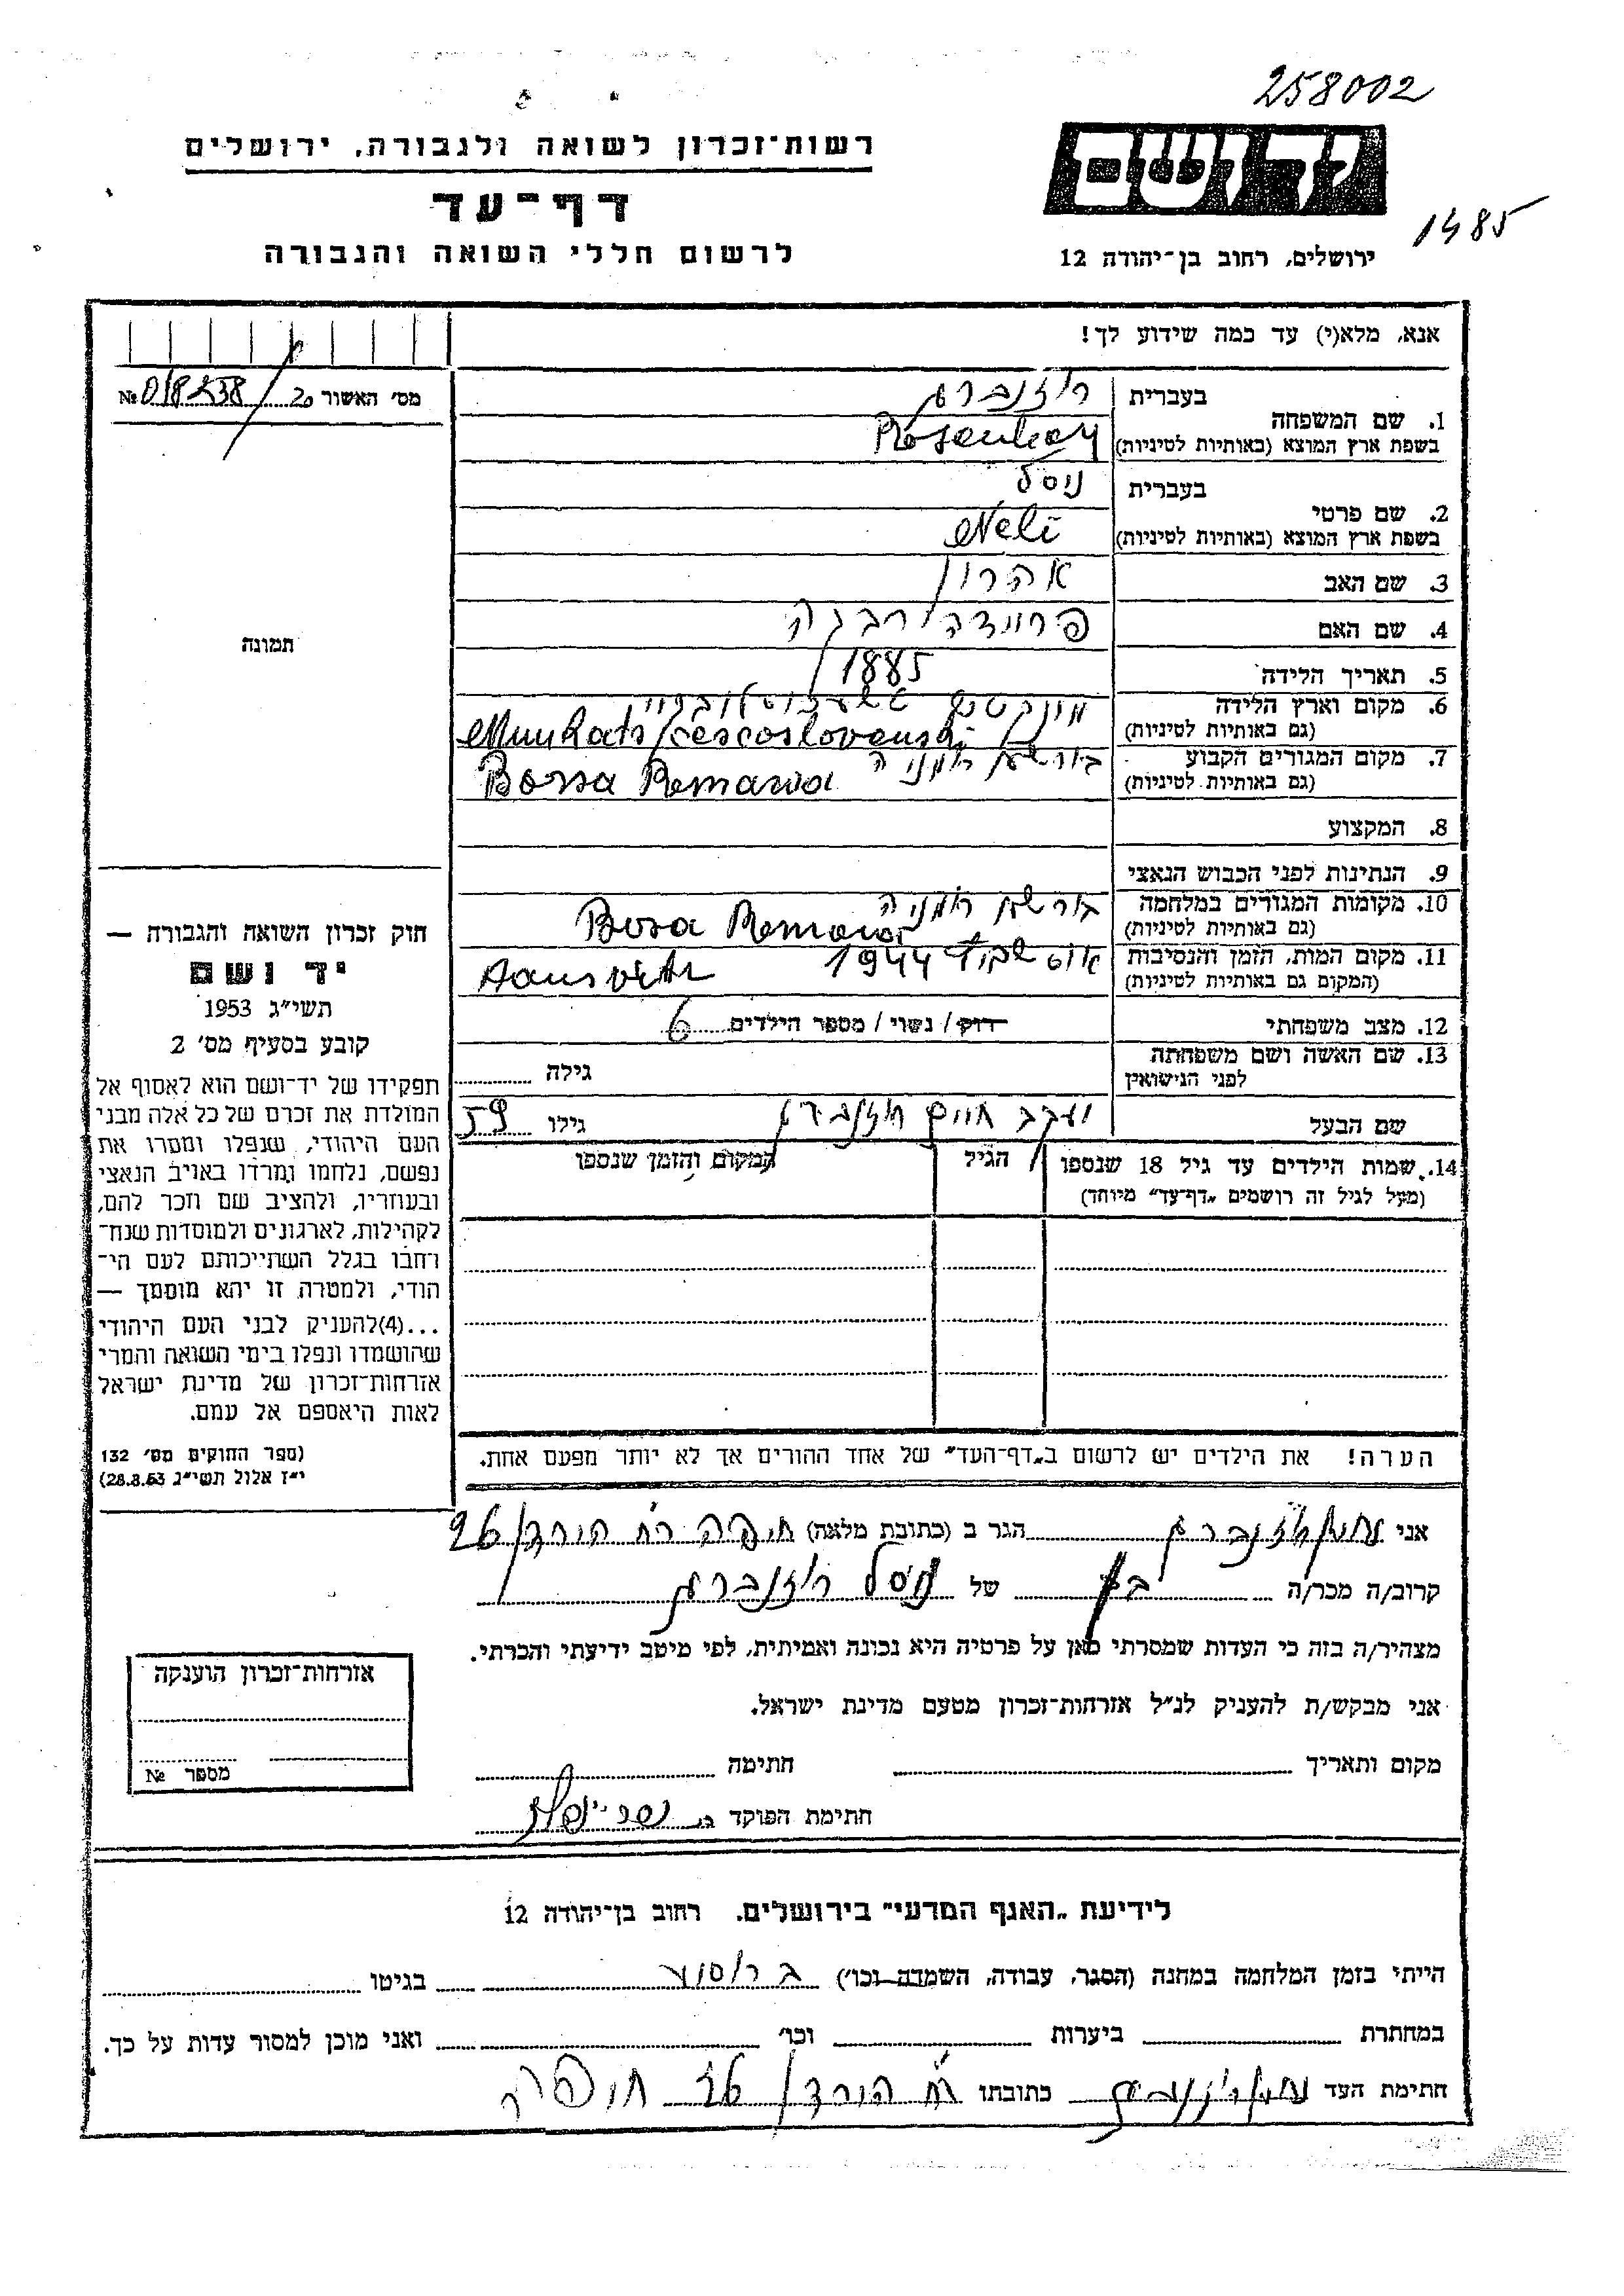 258002
רשות־זכרון לשואה ולגבורה, ירושלים
דף־עד
לרשום חללי השואה והגבורה
יד ושם
1485
ירושלים, רחוב בן־יהודה 12
אנא, מלא(י) עד כמה שידוע לך!
מס׳ האשור №
1. שם המשפחה
בעברית
בשפת ארץ המוצא (באותיות לטיניות)
2. שם פרטי
בעברית
בשפת ארץ המוצא (באותיות לטיניות)
Neli
3. שם האב אהרון
4. שם האם
5. תאריך הלידה 1885
6. מקום וארץ הלידה
(גם באותיות לטיניות)
7. מקום המגורים הקבוע
(גם באותיות לטיניות)
8. המקצוע
9. הנתינות לפני הכבוש הנאצי
10. מקומות המגורים במלחמה
(גם באותיות לטיניות)
11. מקום המות, הזמן והנסיבות 1944
(המקום גם באותיות לטיניות)
12. מצב משפחתי רוק / נשוי / מספר הילדים 6
13. שם האשה ושם משפחתה
לפני הנישואין
גילה
שם הבעל יעקב חיים גילו 59
14. שמות הילדים עד גיל 18 שנספו
(מעל לגיל זה רושמים „דף־עד״ מיוחד)
הגיל
המקום והזמן שנספו
הערה! את הילדים יש לרשום ב„דף־העד״ של אחד ההורים אך לא יותר מפעם אחת.
תמונה
חוק זכרון השואה והגבורה —
יד ושם
תשי״ג 1953
קובע בסעיף מס׳ 2
תפקידו של יד־ושם הוא לאסוף אל
המולדת את זכרם של כל אלה מבני
העם היהודי, שנפלו ומסרו את
נפשם, נלחמו ומרדו באויב הנאצי
ובעוזריו, ולהציב שם וזכר להם,
לקהילות, לארגונים ולמוסדות שנח־
רחבו בגלל השתייכותם לעם הי־
הודי, ולמטרה זו יהא מוסמך —
...(4)להעניק לבני העם היהודי
שהושמדו ונפלו בימי השואה והמרי
אזרחות־זכרון של מדינת ישראל
לאות היאספם אל עמם.
(ספר החוקים מס׳ 132
י״ז אלול תשי״ג 28.8.53)
אני הגר ב (כתובת מלאה) חיפה רח׳ הירדן 26
קרוב/ה מכר/ה בן של
מצהיר/ה בזה כי העדות שמסרתי כאן על פרטיה היא נכונה ואמיתית, לפי מיטב ידיעתי והכרתי.
אני מבקש/ת להעניק לנ״ל אזרחות־זכרון מטעם מדינת ישראל.
מקום ותאריך חתימה
חתימת הפוקד
אזרחות־זכרון הוענקה
מספר №
לידיעת „האגף המדעי״ בירושלים. רחוב בן־יהודה 12
הייתי בזמן המלחמה במחנה (הסגר, עבודה, השמדה וכו׳) בגיטו
במחתרת ביערות וכו׳ ואני מוכן למסור עדות על כך.
חתימת העד כתובתו רח׳ הירדן 26 חיפה